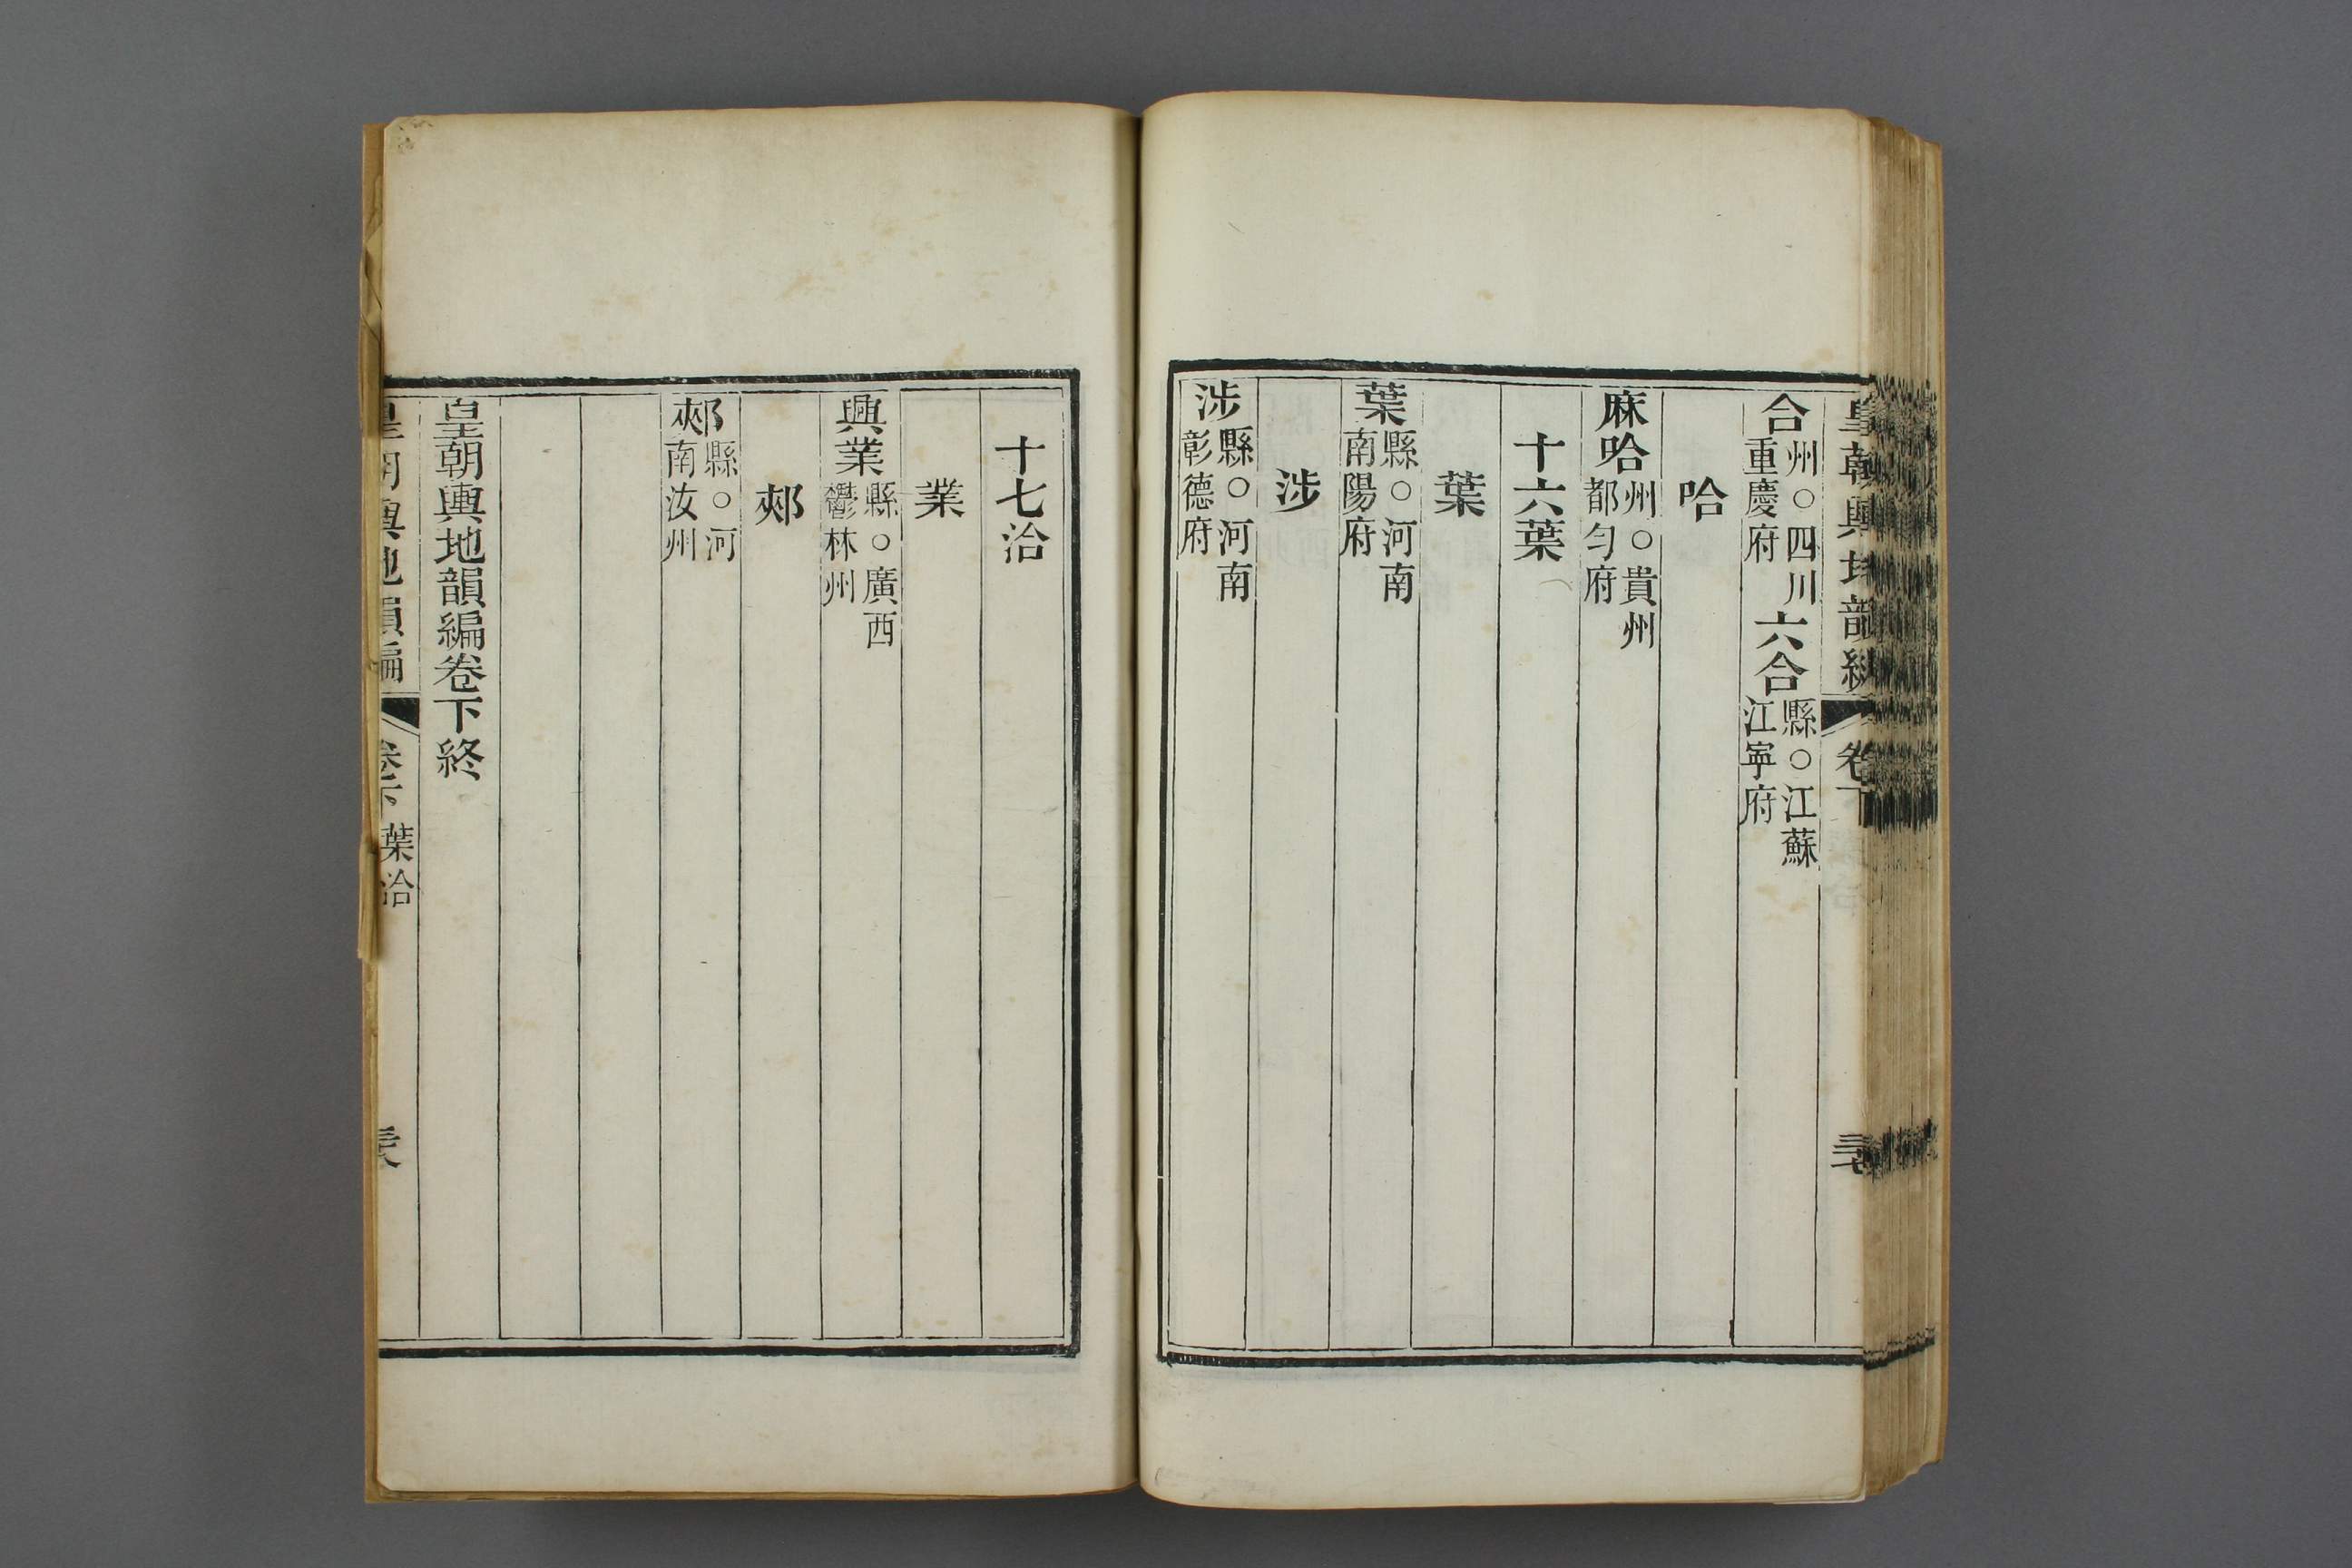 皇朝輿地韻編 卷下
合州○四川重慶府 六合縣○江蘇江寧府
哈
麻哈州○貴州都勻府
十六葉
葉
葉縣○河南南陽府
涉
涉縣○河南彰德府
十七洽
業
興業縣○廣西鬱林州
郟
郟縣○河南汝州
皇朝輿地韻編卷下終
皇朝輿地韻編 卷下 葉洽